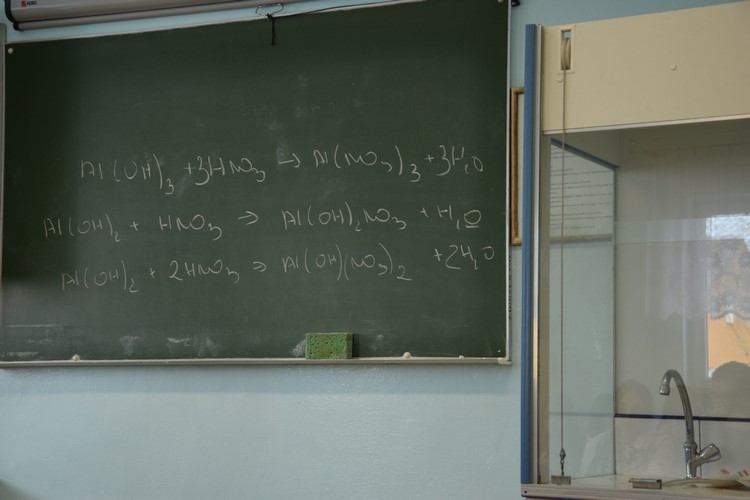 Al(OH)₃ + 3HNO₃ → Al(NO₃)₃ + 3H₂O
Al(OH)₂ + HNO₃ ⇒ Al(OH)₂NO₃ + H₂O
Al(OH)₂ + 2HNO₃ ⇒ Al(OH)(NO₃)₂ + 2H₂O